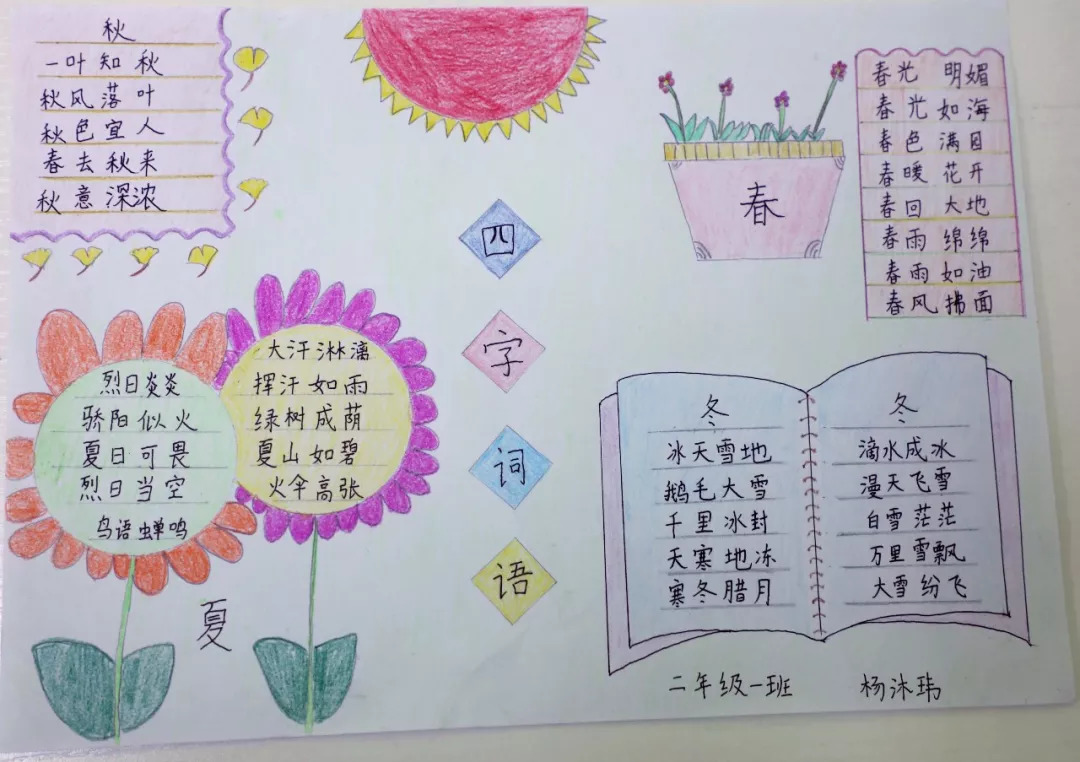 秋
一叶知秋
秋风落叶
秋色宜人
春去秋来
秋意深浓
春
春光明媚
春光如海
春色满目
春暖花开
春回大地
春雨绵绵
春雨如油
春风拂面
四
字
词
语
烈日炎炎
骄阳似火
夏日可畏
烈日当空
鸟语蝉鸣
大汗淋漓
挥汗如雨
绿树成荫
夏山如碧
火伞高张
夏
冬
冰天雪地
鹅毛大雪
千里冰封
天寒地冻
寒冬腊月
冬
滴水成冰
漫天飞雪
白雪茫茫
万里雪飘
大雪纷飞
二年级一班 杨沐玮